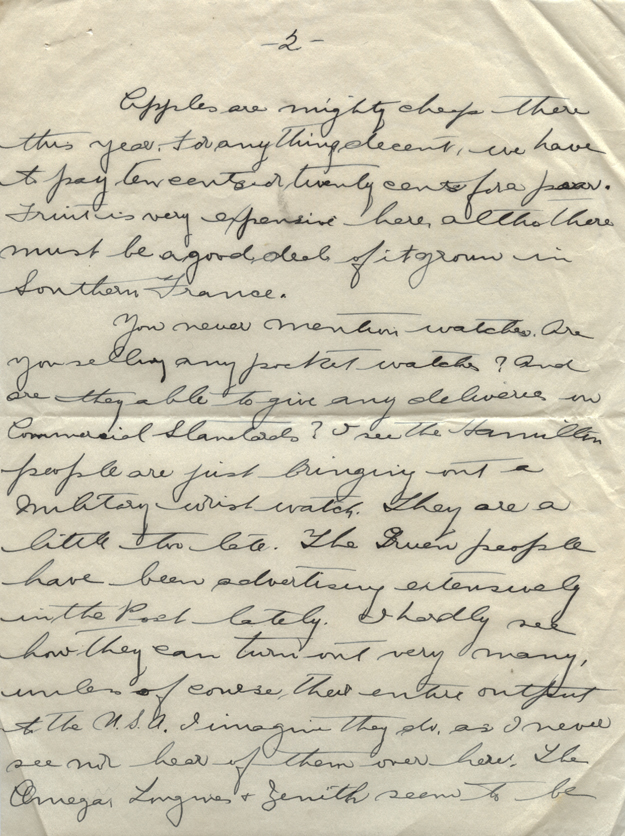 -2-
Apples are mighty cheap there
this year. For anything decent, we have
to pay ten cents or twenty cents for a pear.
Fruit is very expensive here, altho there
must be a good deal of it grown in
Southern France.
You never mention watches. Are
you selling any pocket watches? And
are they able to give any deliveries on
Commercial Standards? I see the Hamilton
people are just bringing out a
military wrist watch. They are a
little too late. The Gruen people
have been advertising extensively
in the Post lately. I hardly see
how they can turn out very many,
unless of course, their entire output
to the U.S.A. I imagine they do, as I never
see nor hear of them over here. The
Omega, Longines + Zenith seem to be